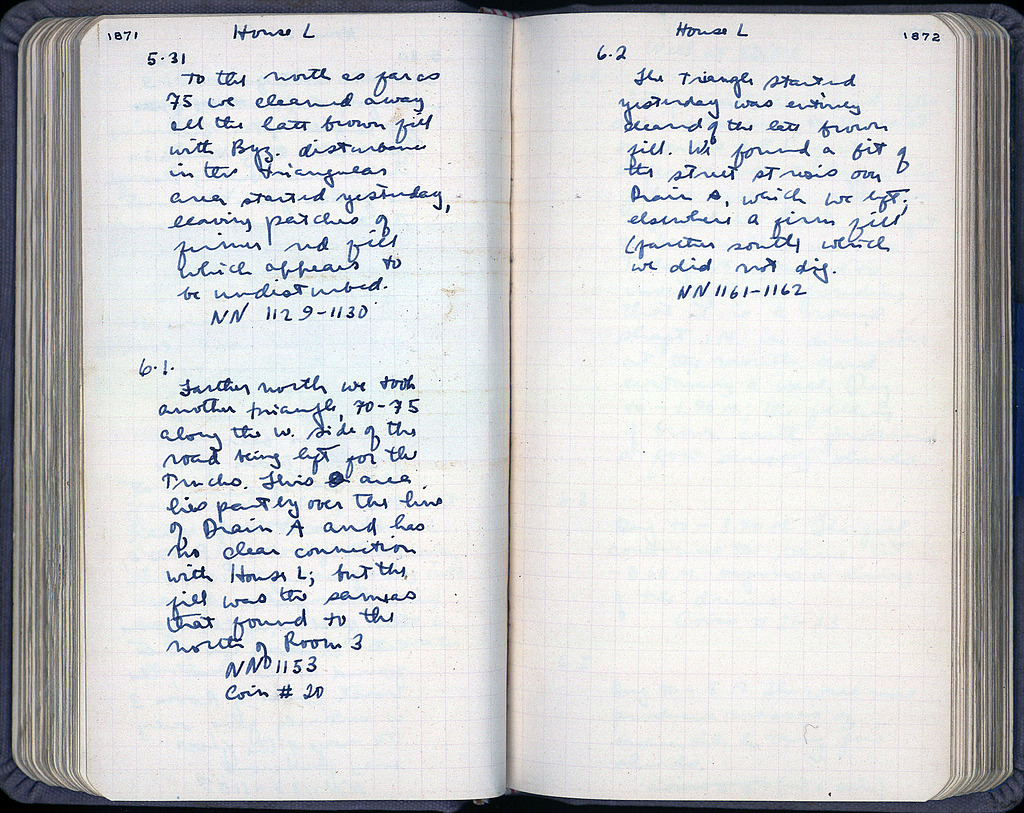 1871
House L
5.31
To the north as far as
75 we cleared away
all the late brown fill
with Byz. disturbance
in the triangular
area started yesterday,
leaving patches of
firmer red fill
which appears to
be undisturbed.
NN 1129-1130
6.1.
Farther north we took
another triangle, 70-75
along the W. side of the
road being left for the
trucks. This area
lies partly over the line
of Drain A and has
no clear connection
with House L; but the
fill was the same as
that found to the
north of Room 3
NN 1153
Coin # 20
House L
1872
6.2
The triangle started
yesterday was entirely
cleared of the late brown
fill. We found a bit of
the street strosis over
Drain A, which we left;
elsewhere a firm fill
(farther south) which
we did not dig.
NN 1161-1162